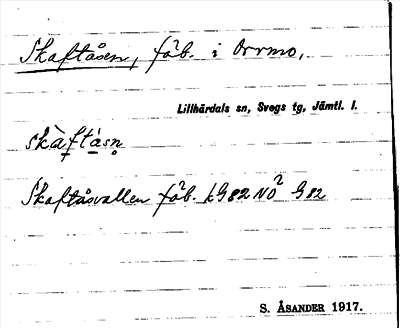 Skaftåsen, fäb. i Orrmo,
Lillhärdals sn, Svegs tg, Jämtl. l.
skàftåsn̥
Skaftåsvallen fäb. LG82 NO² G82
S. ÅSANDER 1917.